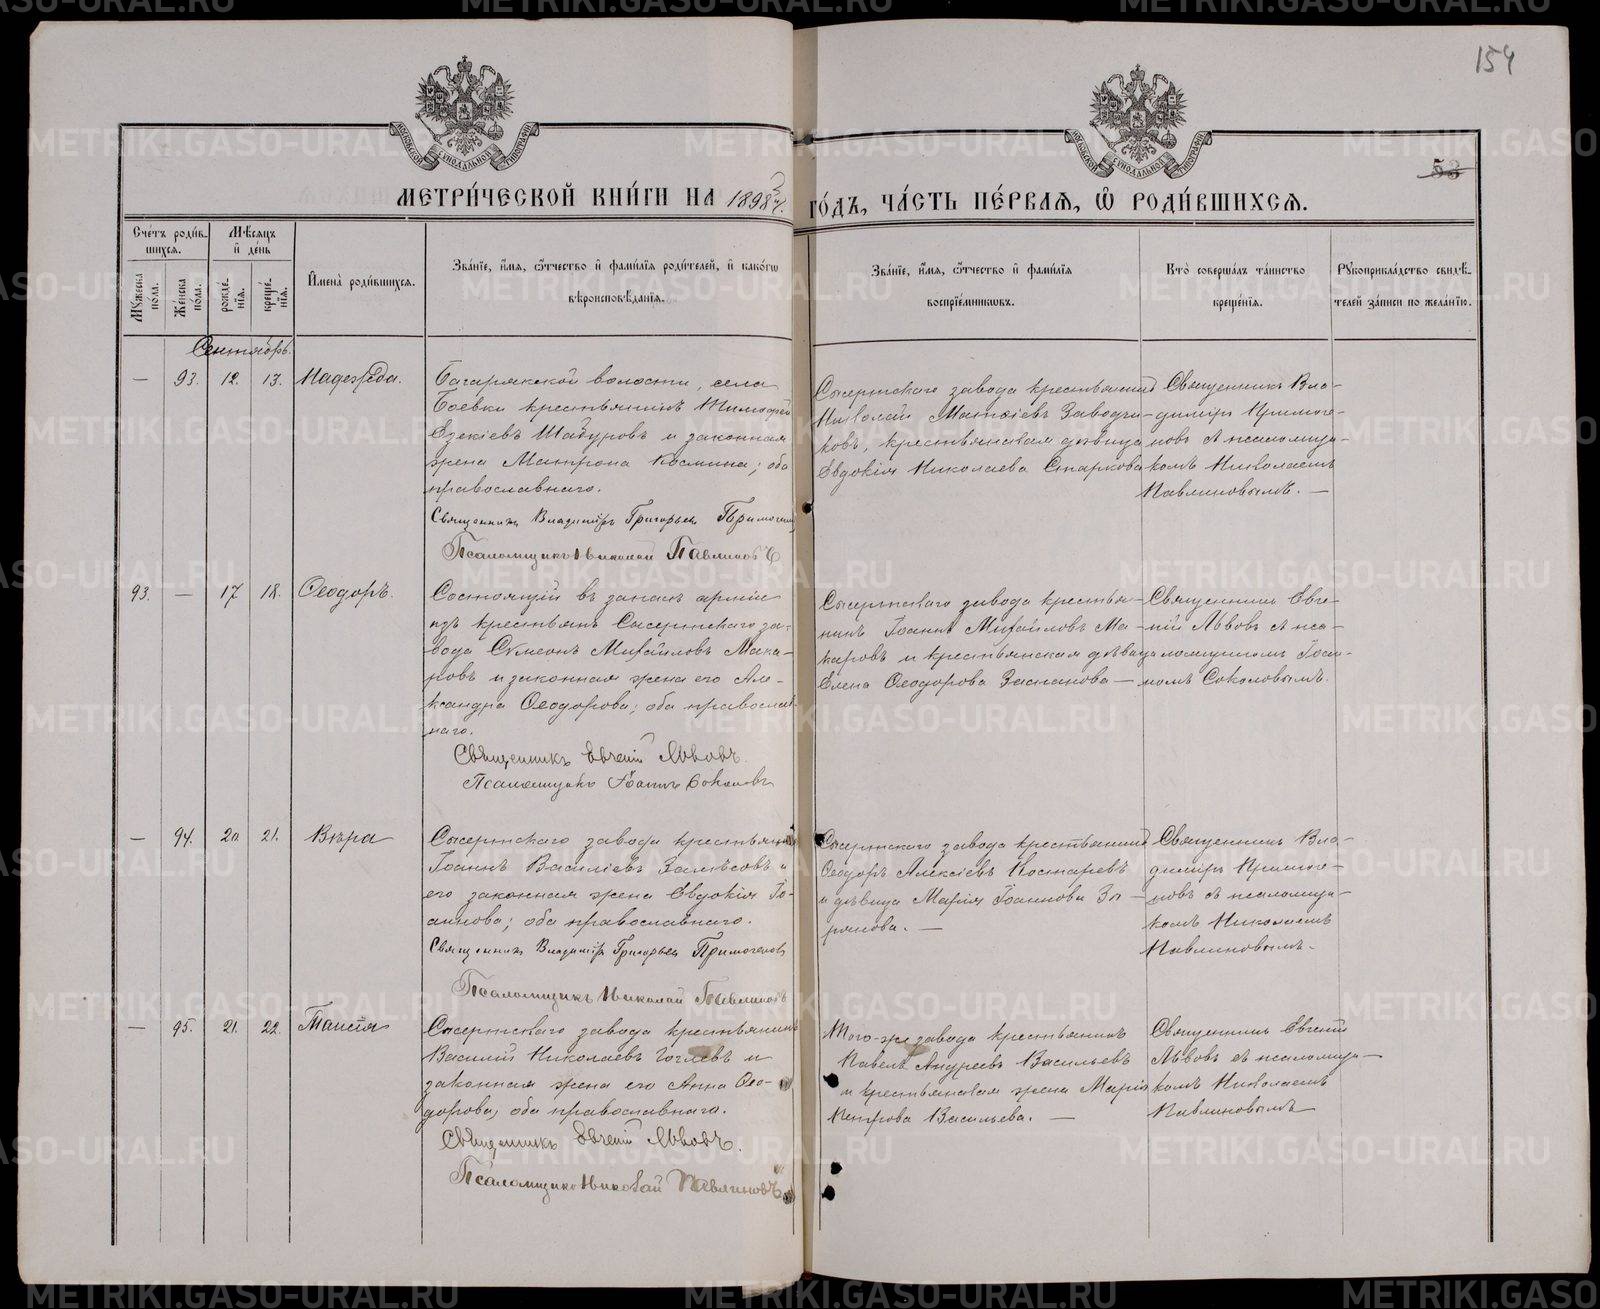 154
53
МЕТРИ́ЧЕСКОЙ КНИ́ГИ НА 1898
ГО́ДЪ, ЧА́СТЬ ПЕ́РВАЯ, Ѡ РОДИ́ВШИХСЯ.
Сче́тъ роди́в-
шихся.
Мѣ́сяцъ
и҆ де́нь
Мꙋ́жеска по́ла.
Же́нска по́ла.
рожде́-
нїѧ.
креще́-
нїѧ.
И҆мена̀ роди́вшихся.
Зва́нїе, и҆́мѧ, ѻ҆́тчество и҆ фамилїѧ роди́телей, и҆ како́гѡ
вѣроисповѣ́данїѧ.
Зва́нїе, и҆́мѧ, ѻ҆́тчество и҆ фамилїѧ
воспрїе́мниковъ.
Кто̀ соверша́лъ та́инство
креще́нїѧ.
Рꙋкоприкла́дство свидѣ́-
телей за́писи по жела́нїю.
Сентябрь.
— 93. 12. 13. Надежда.
Багарякской волости, села
Боевки крестьянинъ Тимофей
Езекіевъ Шабуровъ и законная
жена Матрона Космина; оба
православнаго.
Священникъ Владиміръ Григорьевъ
Псаломщикъ Николай Павлиновъ
Сысертскаго завода крестьянинъ
Николай Матѳіевъ
ковъ, крестьянская дѣвица
Евдокія Николаева Старкова
Священникъ Вла-
димиръ Примоге-
новъ съ псаломщи-
комъ Николаемъ
Павлиновымъ. —
93. — 17 18. Ѳеодоръ.
Состоящій въ запасѣ арміи
изъ крестьянъ Сысертскаго за-
вода Сѵмеонъ Михайловъ Мака-
ровъ и законная жена его Але-
ксандра Ѳеодорова; оба православ-
наго.
Священникъ Евгеній Львовъ
Псаломщикъ Іоаннъ Соколовъ
Сысертскаго завода крестья-
нинъ Іоаннъ Михайловъ Ма-
каровъ и крестьянская дѣвица
Елена Ѳеодорова —
Священникъ Евге-
ній Львовъ съ пса-
ломщикомъ Іоан-
номъ Соколовымъ.
— 94. 20 21. Вѣра
Сысертскаго завода крестьянинъ
Іоаннъ Василіевъ и
его законная жена Евдокія Іо-
аннова; оба православнаго.
Священникъ Владиміръ Григорьевъ Примогеновъ
Псаломщикъ Николай Павлиновъ
Сысертскаго завода крестьянинъ
Ѳеодоръ Алексіевъ Костаревъ
и дѣвица Марія Іоаннова
Священникъ Вла-
димиръ Примоге-
новъ съ псаломщи-
комъ Николаемъ
Павлиновымъ.
— 95. 21. 22. Таисія
Сысертскаго завода крестьянинъ
Василій Николаевъ и
законная жена его Анна Ѳео-
дорова; оба православнаго.
Священникъ Евгеній Львовъ.
Псаломщикъ Николай Павлиновъ
Того-же завода крестьянинъ
Павелъ Андреевъ Васильевъ
и крестьянская жена Марія
Петрова Васильева. —
Священникъ Евгеній
Львовъ съ псаломщи-
комъ Николаемъ
Павлиновымъ
METRIKI.GASO-URAL.RU